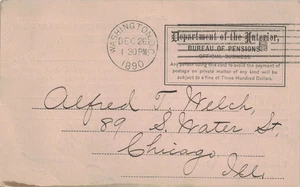 WASHINGTON, D.C.
DEC 26
1 30 PM
1890
Department of the Interior,
BUREAU OF PENSIONS
OFFICIAL BUSINESS
Any person using this card to avoid the payment of
postage on private matter of any kind will be
subject to a fine of Three Hundred Dollars.
Alfred T. Welch,
89 S. Water St,
Chicago
Ill.